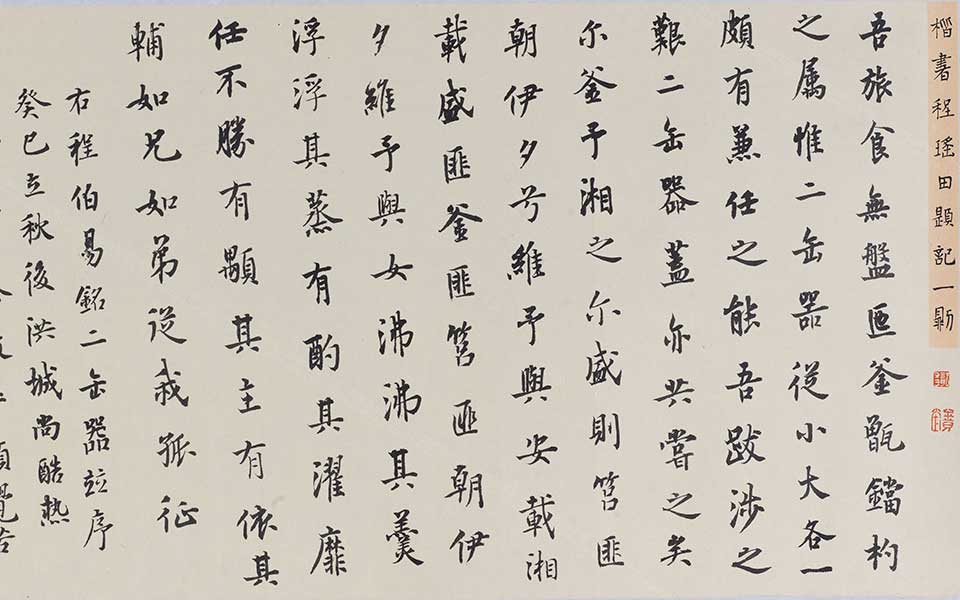 楷書程瑤田題記一則
吾旅食無盤匜釜甑鐺杓
之屬惟二缶器從小大各一
頗有兼任之能吾跋涉之
艱二缶器蓋亦共嘗之矣
尔釜予湘之尔盛則筥匪
朝伊夕兮維予與安載湘
載盛匪釜匪筥匪朝伊
夕維予與女沸沸其羹
浮浮其蒸有酌其濯靡
任不勝有顒其主有依其
輔如兄如弟從我孤征
右程伯易銘二缶器並序
癸巳立秋後洪城尚酷熱